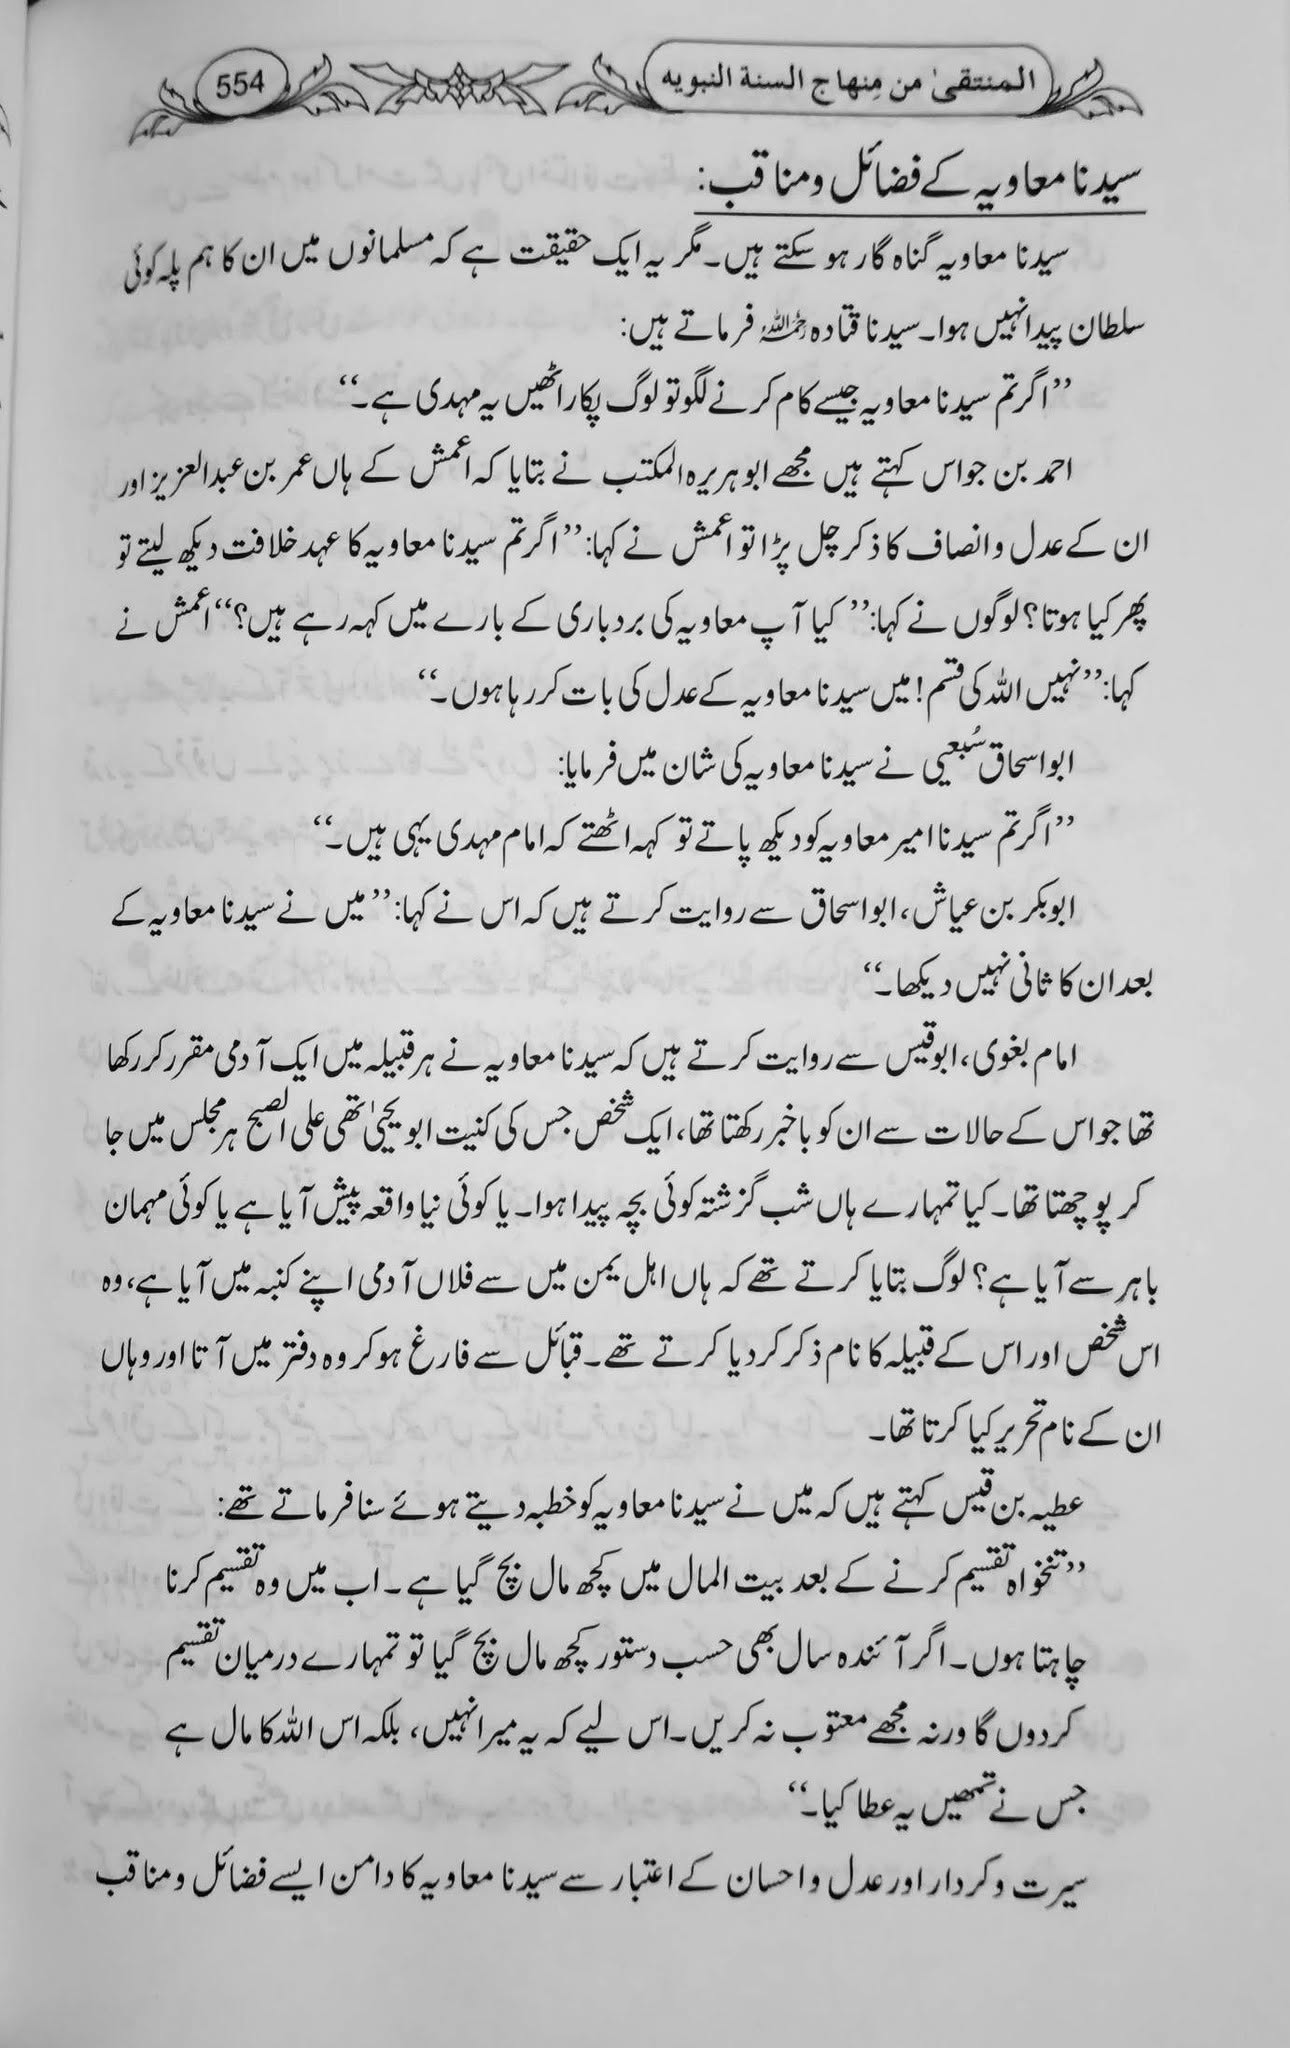 المنتقیٰ من مِنهاج السنة النبویه
554
سیدنا معاویہ کے فضائل و مناقب:
سیدنا معاویہ گناہ گار ہو سکتے ہیں۔ مگر یہ ایک حقیقت ہے کہ مسلمانوں میں ان کا ہم پلہ کوئی
سلطان پیدا نہیں ہوا۔ سیدنا قتادہ رحمہ اللہ فرماتے ہیں:
’’اگر تم سیدنا معاویہ جیسے کام کرنے لگو تو لوگ پکار اٹھیں یہ مہدی ہے۔‘‘
احمد بن جواس کہتے ہیں مجھے ابوہریرہ المکتب نے بتایا کہ اعمش کے ہاں عمر بن عبدالعزیز اور
ان کے عدل و انصاف کا ذکر چل پڑا تو اعمش نے کہا: ’’اگر تم سیدنا معاویہ کا عہد خلافت دیکھ لیتے تو
پھر کیا ہوتا؟ لوگوں نے کہا: ’’کیا آپ معاویہ کی بردباری کے بارے میں کہہ رہے ہیں؟‘‘ اعمش نے
کہا: ’’نہیں اللہ کی قسم! میں سیدنا معاویہ کے عدل کی بات کر رہا ہوں۔‘‘
ابو اسحاق سُبعیی نے سیدنا معاویہ کی شان میں فرمایا:
’’اگر تم سیدنا امیر معاویہ کو دیکھ پاتے تو کہہ اٹھتے کہ امام مہدی یہی ہیں۔‘‘
ابوبکر بن عیاش، ابو اسحاق سے روایت کرتے ہیں کہ اس نے کہا: ’’میں نے سیدنا معاویہ کے
بعد ان کا ثانی نہیں دیکھا۔‘‘
امام بغوی، ابوقیس سے روایت کرتے ہیں کہ سیدنا معاویہ نے ہر قبیلہ میں ایک آدمی مقرر کر رکھا
تھا جو اس کے حالات سے ان کو باخبر رکھتا تھا، ایک شخص جس کی کنیت ابو یحییٰ تھی علی الصبح ہر مجلس میں جا
کر پوچھتا تھا۔ کیا تمہارے ہاں شب گزشتہ کوئی بچہ پیدا ہوا۔ یا کوئی نیا واقعہ پیش آیا ہے یا کوئی مہمان
باہر سے آیا ہے؟ لوگ بتایا کرتے تھے کہ ہاں اہل یمن میں سے فلاں آدمی اپنے کنبہ میں آیا ہے، وہ
اس شخص اور اس کے قبیلہ کا نام ذکر کر دیا کرتے تھے۔ قبائل سے فارغ ہو کر وہ دفتر میں آتا اور وہاں
ان کے نام تحریر کیا کرتا تھا۔
عطیہ بن قیس کہتے ہیں کہ میں نے سیدنا معاویہ کو خطبہ دیتے ہوئے سنا فرماتے تھے:
’’تنخواہ تقسیم کرنے کے بعد بیت المال میں کچھ مال بچ گیا ہے۔ اب میں وہ تقسیم کرنا
چاہتا ہوں۔ اگر آئندہ سال بھی حسب دستور کچھ مال بچ گیا تو تمہارے درمیان تقسیم
کر دوں گا ورنہ مجھے معتوب نہ کریں۔ اس لیے کہ یہ میرا نہیں، بلکہ اس اللہ کا مال ہے
جس نے تمھیں یہ عطا کیا۔‘‘
سیرت و کردار اور عدل و احسان کے اعتبار سے سیدنا معاویہ کا دامن ایسے فضائل و مناقب